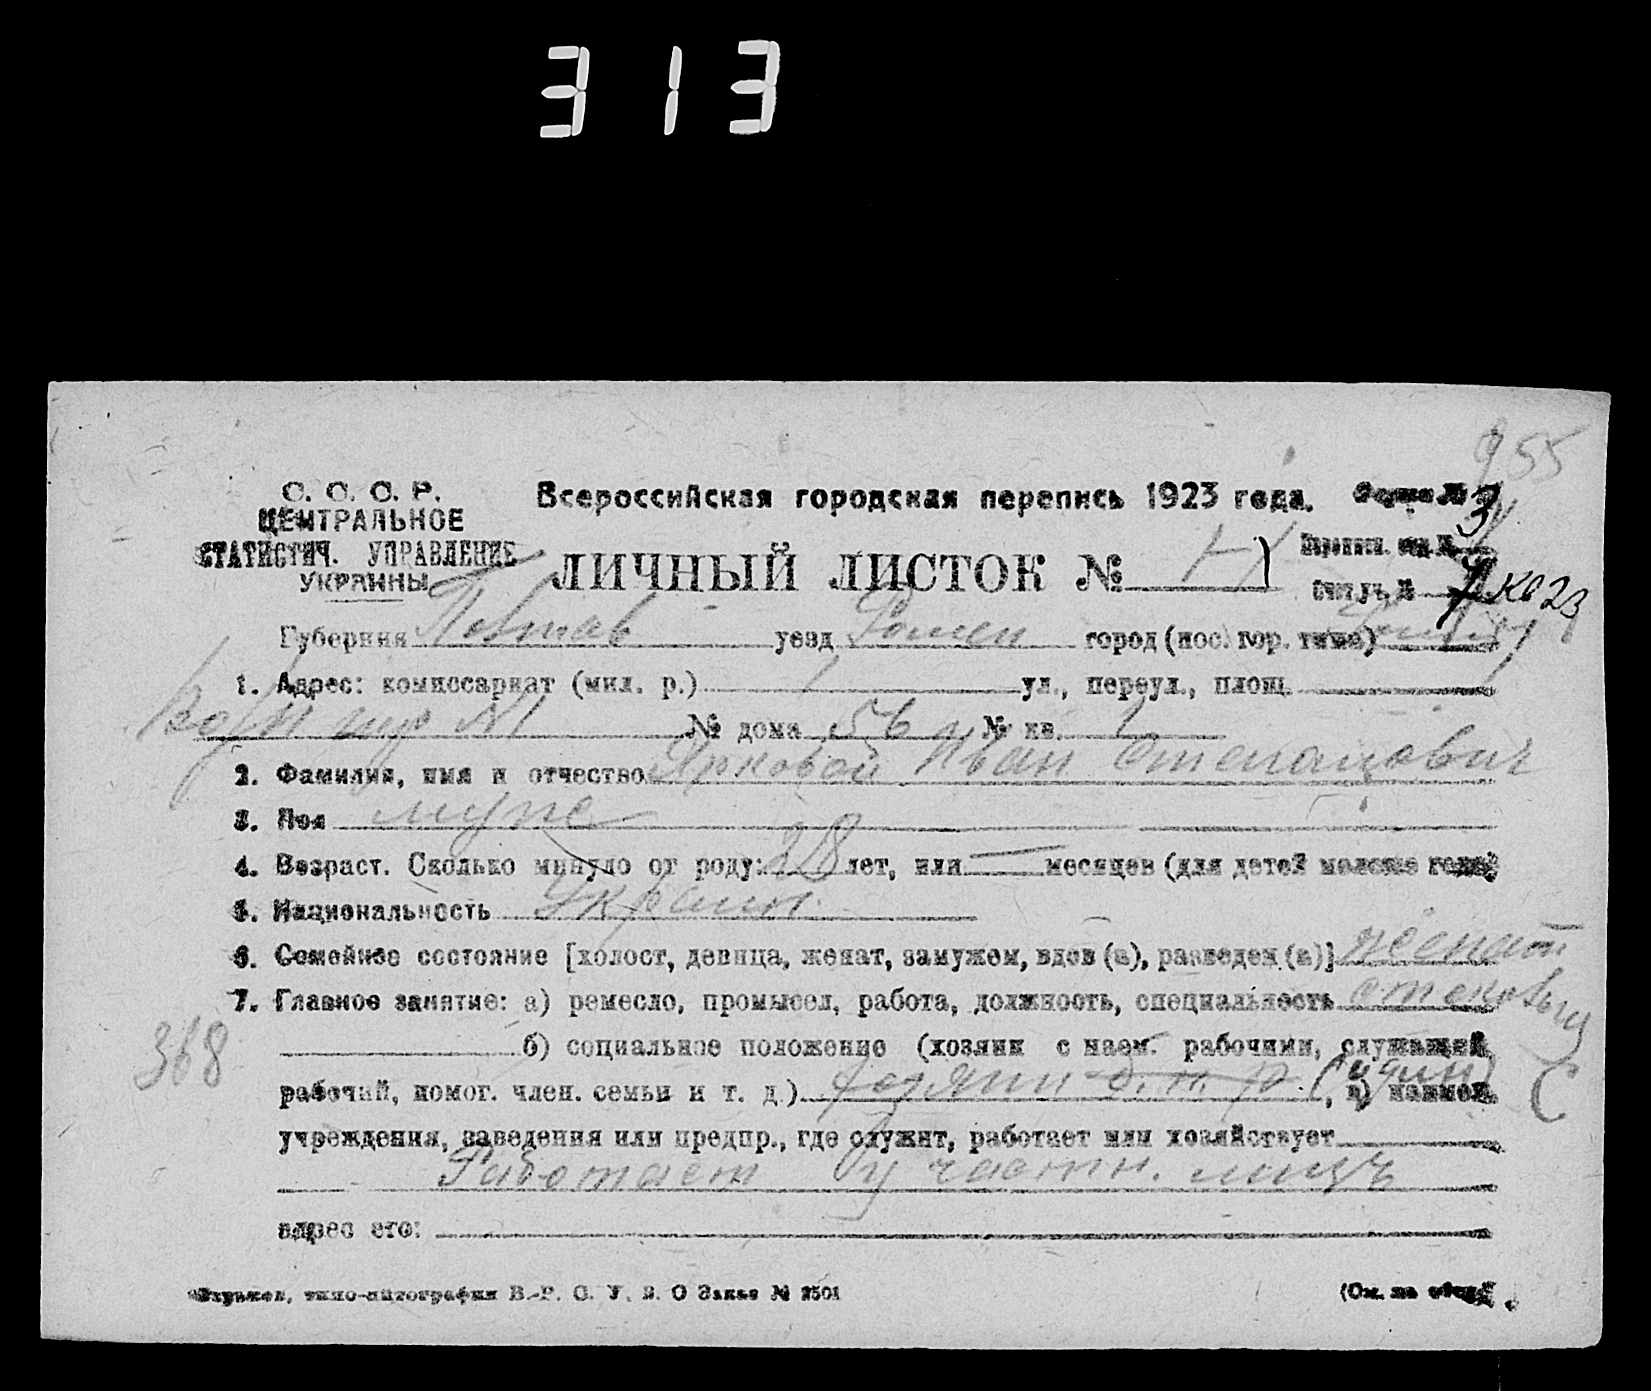 313
955
С. С. С. Р.
ЦЕНТРАЛЬНОЕ
СТАТИСТИЧ. УПРАВЛЕНИЕ
УКРАИНЫ
Всероссийская городская перепись 1923 года. Форма № 3
ЛИЧНЫЙ ЛИСТОК №
Губерния Полтав уезд Ромен город (пос. гор. типа)
1. Адрес: комиссариат (мил. р.) 1 ул., переул., площ.
№ 1 № дома 56 № кв. 1
2. Фамилия, имя и отчество Ярковой Иван Степанович
3. Пол муж
4. Возраст. Сколько минуло от роду: 28 лет, или — месяцев (для детей моложе года)
5. Национальность Украин.
6. Семейное состояние [холост, девица, женат, замужем, вдов (а), разведен (а)] женат
7. Главное занятие: а) ремесло, промысел, работа, должность, специальность
368
б) социальное положение (хозяин с наем. рабочими, служащий,
рабочий, помог. член. семьи и т. д.) хозяин (один), в) наимен.
учреждения, заведения или предпр., где служит, работает или хозяйствует
Работает у частн. лицъ
адрес его:
Харьков, типо-литография В.-Р. С. У. В. О Заказ № 2501
(См. на обор.).